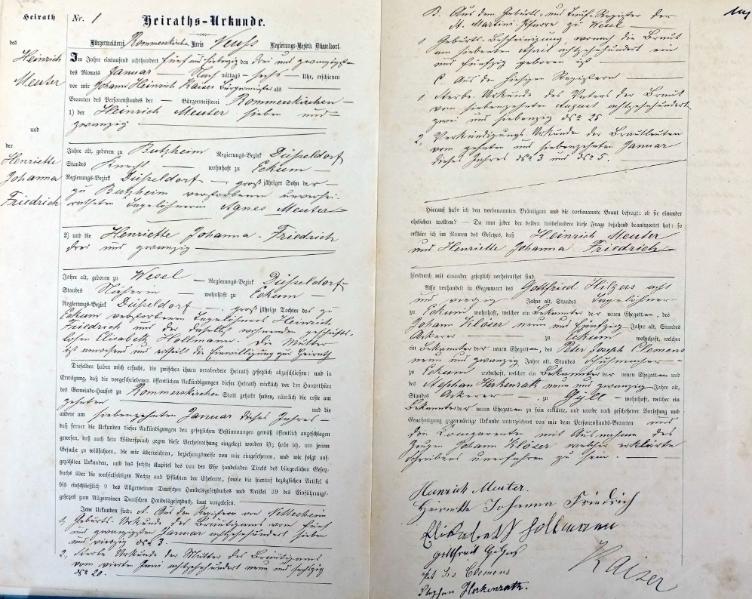 Heirath
des
Heinrich
Meuter
und
der
Henriette
Johanna
Friedrich
Nr. 1 Heiraths-Urkunde.
Bürgermeisterei Rommerskirchen Kreis Neuss Regierungs-Bezirk Düsseldorf.
Im Jahre eintausend achthundert fünf und siebenzig den drei und zwanzigsten
des Monats Januar mittags sechs Uhr, erschienen
vor mir Johann Heinrich Kaiser Bürgermeister
Beamten des Personenstandes der Bürgermeisterei Rommerskirchen
1) der Heinrich Meuter sieben und
zwanzig
Jahre alt, geboren zu Butzheim Regierungs-Bezirk Düsseldorf
Standes Knecht wohnhaft zu Eckum
Regierungs-Bezirk Düsseldorf großjähriger Sohn der
zu Butzheim verstorbenen
Tagelöhnerin Agnes Meuter
2) und die Henriette Johanna Friedrich
drei und zwanzig
Jahre alt, geboren zu Wesel Regierungs-Bezirk Düsseldorf
Standes Näherin wohnhaft zu Eckum
Regierungs-Bezirk Düsseldorf großjährige Tochter des zu
Eckum verstorbenen Tagelöhners Heinrich
Friedrich und der daselbst wohnenden
Elisabeth Hollmann. Die Mutter
ist anwesend und ertheilt die Einwilligung zur Heirath
Dieselben haben mich ersucht, die zwischen ihnen verabredete Heirath gesetzlich abzuschließen; und in
Erwägung, daß die vorgeschriebenen öffentlichen Verkündigungen dieser Heirath wirklich vor der Hauptthüre
des Gemeinde-Hauses zu Rommerskirchen Statt gehabt haben, nämlich die erste am
zehnten und die
andere am siebenzehnten Januar dieses Jahres
daß ferner die Urkunden dieser Verkündigungen den gesetzlichen Bestimmungen gemäß öffentlich angeschlagen
gewesen, daß auch kein Widerspruch gegen diese Eheverbindung eingelegt worden ist; habe ich, um jenem
Gesuche zu willfahren, die mir überreichten, beziehungsweise von mir eingesehenen, und wie folgt
Urkunden, und das sechste Kapitel des von Ehe handelnden Titels des bürgerlichen Gesetz-
buchs über die wechselseitigen Rechte und Pflichten der Eheleute, sowie die hierauf bezüglichen Artikel 6
bis einschließlich 9 des Allgemeinen Deutschen Handelsgesetzbuches und Artikel 29 des Einführungs-
gesetzes zum Allgemeinen Deutschen Handelsgesetzbuch, laut vorgelesen.
Jene Urkunden sind: A. Aus den Registern von Nettesheim
1. Geburts-Urkunde des Bräutigams vom fünf
und zwanzigsten Januar achtzehnhundert sieben
und vierzig No. 3
2. Sterbe Urkunde der Mutter des Bräutigams
vom vierten Juni achtzehnhundert neun und sechzig
No. 20.
B. Aus dem Geburts- und Tauf-Register der
St. Martini Pfarre zu Wesel
1 Geburts Bescheinigung wonach die Braut
am siebenten April achtzehnhundert ein
und fünfzig geboren ist
C Aus den hiesigen Registern
1 Sterbe Urkunde des Vaters der Braut
vom siebenzehnten August achtzehnhundert
zwei und siebenzig No. 25
2 Verkündigungs Urkunde der Brautleuten
vom zehnten und siebenzehnten Januar
dieses Jahres No. 3 und No. 5.
Hierauf habe ich den vorbenannten Bräutigam und die vorbenannte Braut befragt: ob sie einander
ehelichen wollen? Da nun jeder der beiden insbesondere diese Frage bejahend beantwortet hat: so
erkläre ich im Namen des Gesetzes, daß Heinrich Meuter
und Henriette Johanna Friedrich
hierdurch mit einander gesetzlich verheirathet sind.
Also verhandelt in Gegenwart des Gottfried Hilgers acht
und vierzig Jahre alt, Standes Tagelöhner
zu Eckum wohnhaft, welcher ein Bekannter der neuen Ehegatten, des
Johann Klöser neun und fünfzig Jahre alt, Standes
Ackerer zu Eckum wohnhaft, welcher
ein Bekannter der neuen Ehegatten, des Peter Joseph Clemens
neun und zwanzig Jahre alt, Standes Schuhmacher
zu Eckum wohnhaft, welcher ein Bekannter der neuen Ehegatten und
des Stephan Harkenrath neun und zwanzig Jahre alt,
Standes Ackerer zu Gill wohnhaft, welcher ein
Bekannter der neuen Ehegatten zu sein erklärte, und wurde nach geschehener Vorlesung und
Genehmigung gegenwärtige Urkunde unterzeichnet von mir dem Personenstands-Beamten und
den Comparenten mit Ausnahme des
Zeugen Johann Klöser welcher erklärte
schreibens unerfahren zu sein.
Heinrich Meuter
Johanna Friedrich
Elisabeth Hollmann
Gottfried Hilgers
Clemens
Stephan Harkenrath
Kaiser